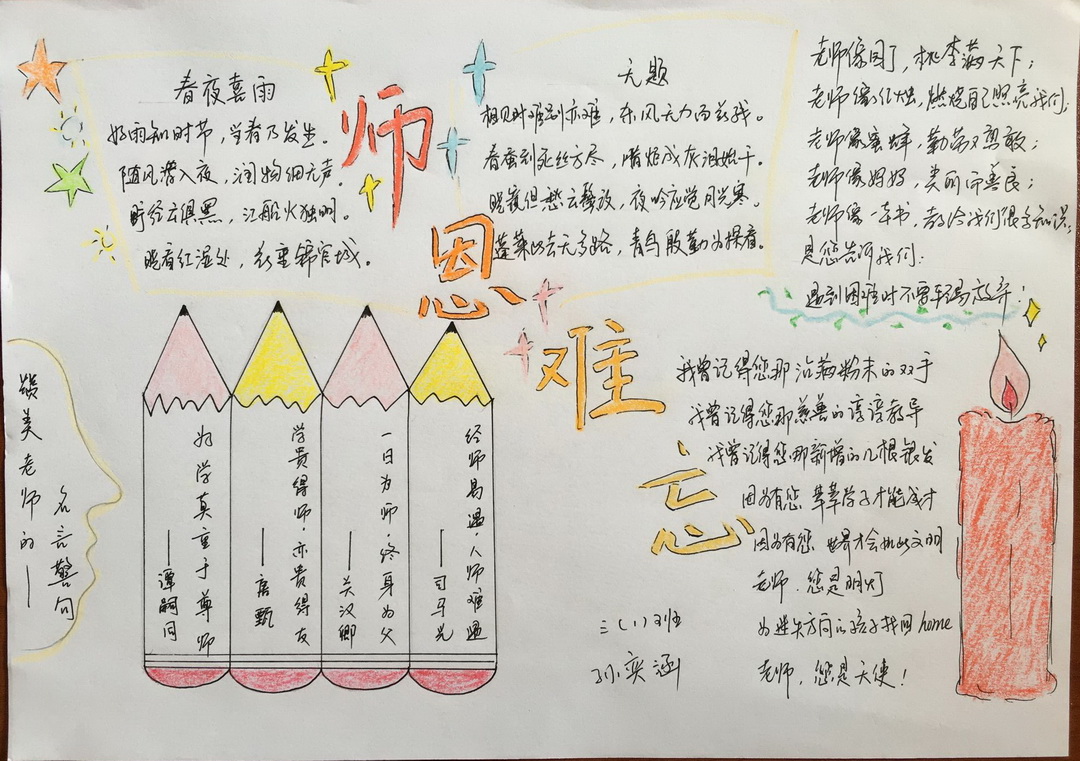 师恩难忘
春夜喜雨
好雨知时节，当春乃发生。
随风潜入夜，润物细无声。
野径云俱黑，江船火独明。
晓看红湿处，花重锦官城。
无题
相见时难别亦难，东风无力百花残。
春蚕到死丝方尽，蜡炬成灰泪始干。
晓镜但愁云鬓改，夜吟应觉月光寒。
蓬莱此去无多路，青鸟殷勤为探看。
老师像园丁，桃李满天下；
老师像红烛，燃烧自己照亮我们；
老师像蜜蜂，勤劳又勇敢；
老师像妈妈，美丽而善良；
老师像一本书，教给我们很多知识；
是您告诉我们：
遇到困难时不要轻易放弃！
颂美老师的——
名言警句
为学莫重于尊师
——谭嗣同
学贵得师，亦贵得友
——唐甄
一日为师，终身为父
——关汉卿
经师易遇，人师难遇
——司马光
我曾记得您那沾满粉末的双手
我曾记得您那慈善的谆谆教导
我曾记得您那新增的几根银发
因为有您 莘莘学子才能成才
因为有您 世界才会如此文明
老师，您是明灯
为迷失方向的孩子找回home
老师，您是天使！
三（1）班
孙奕涵